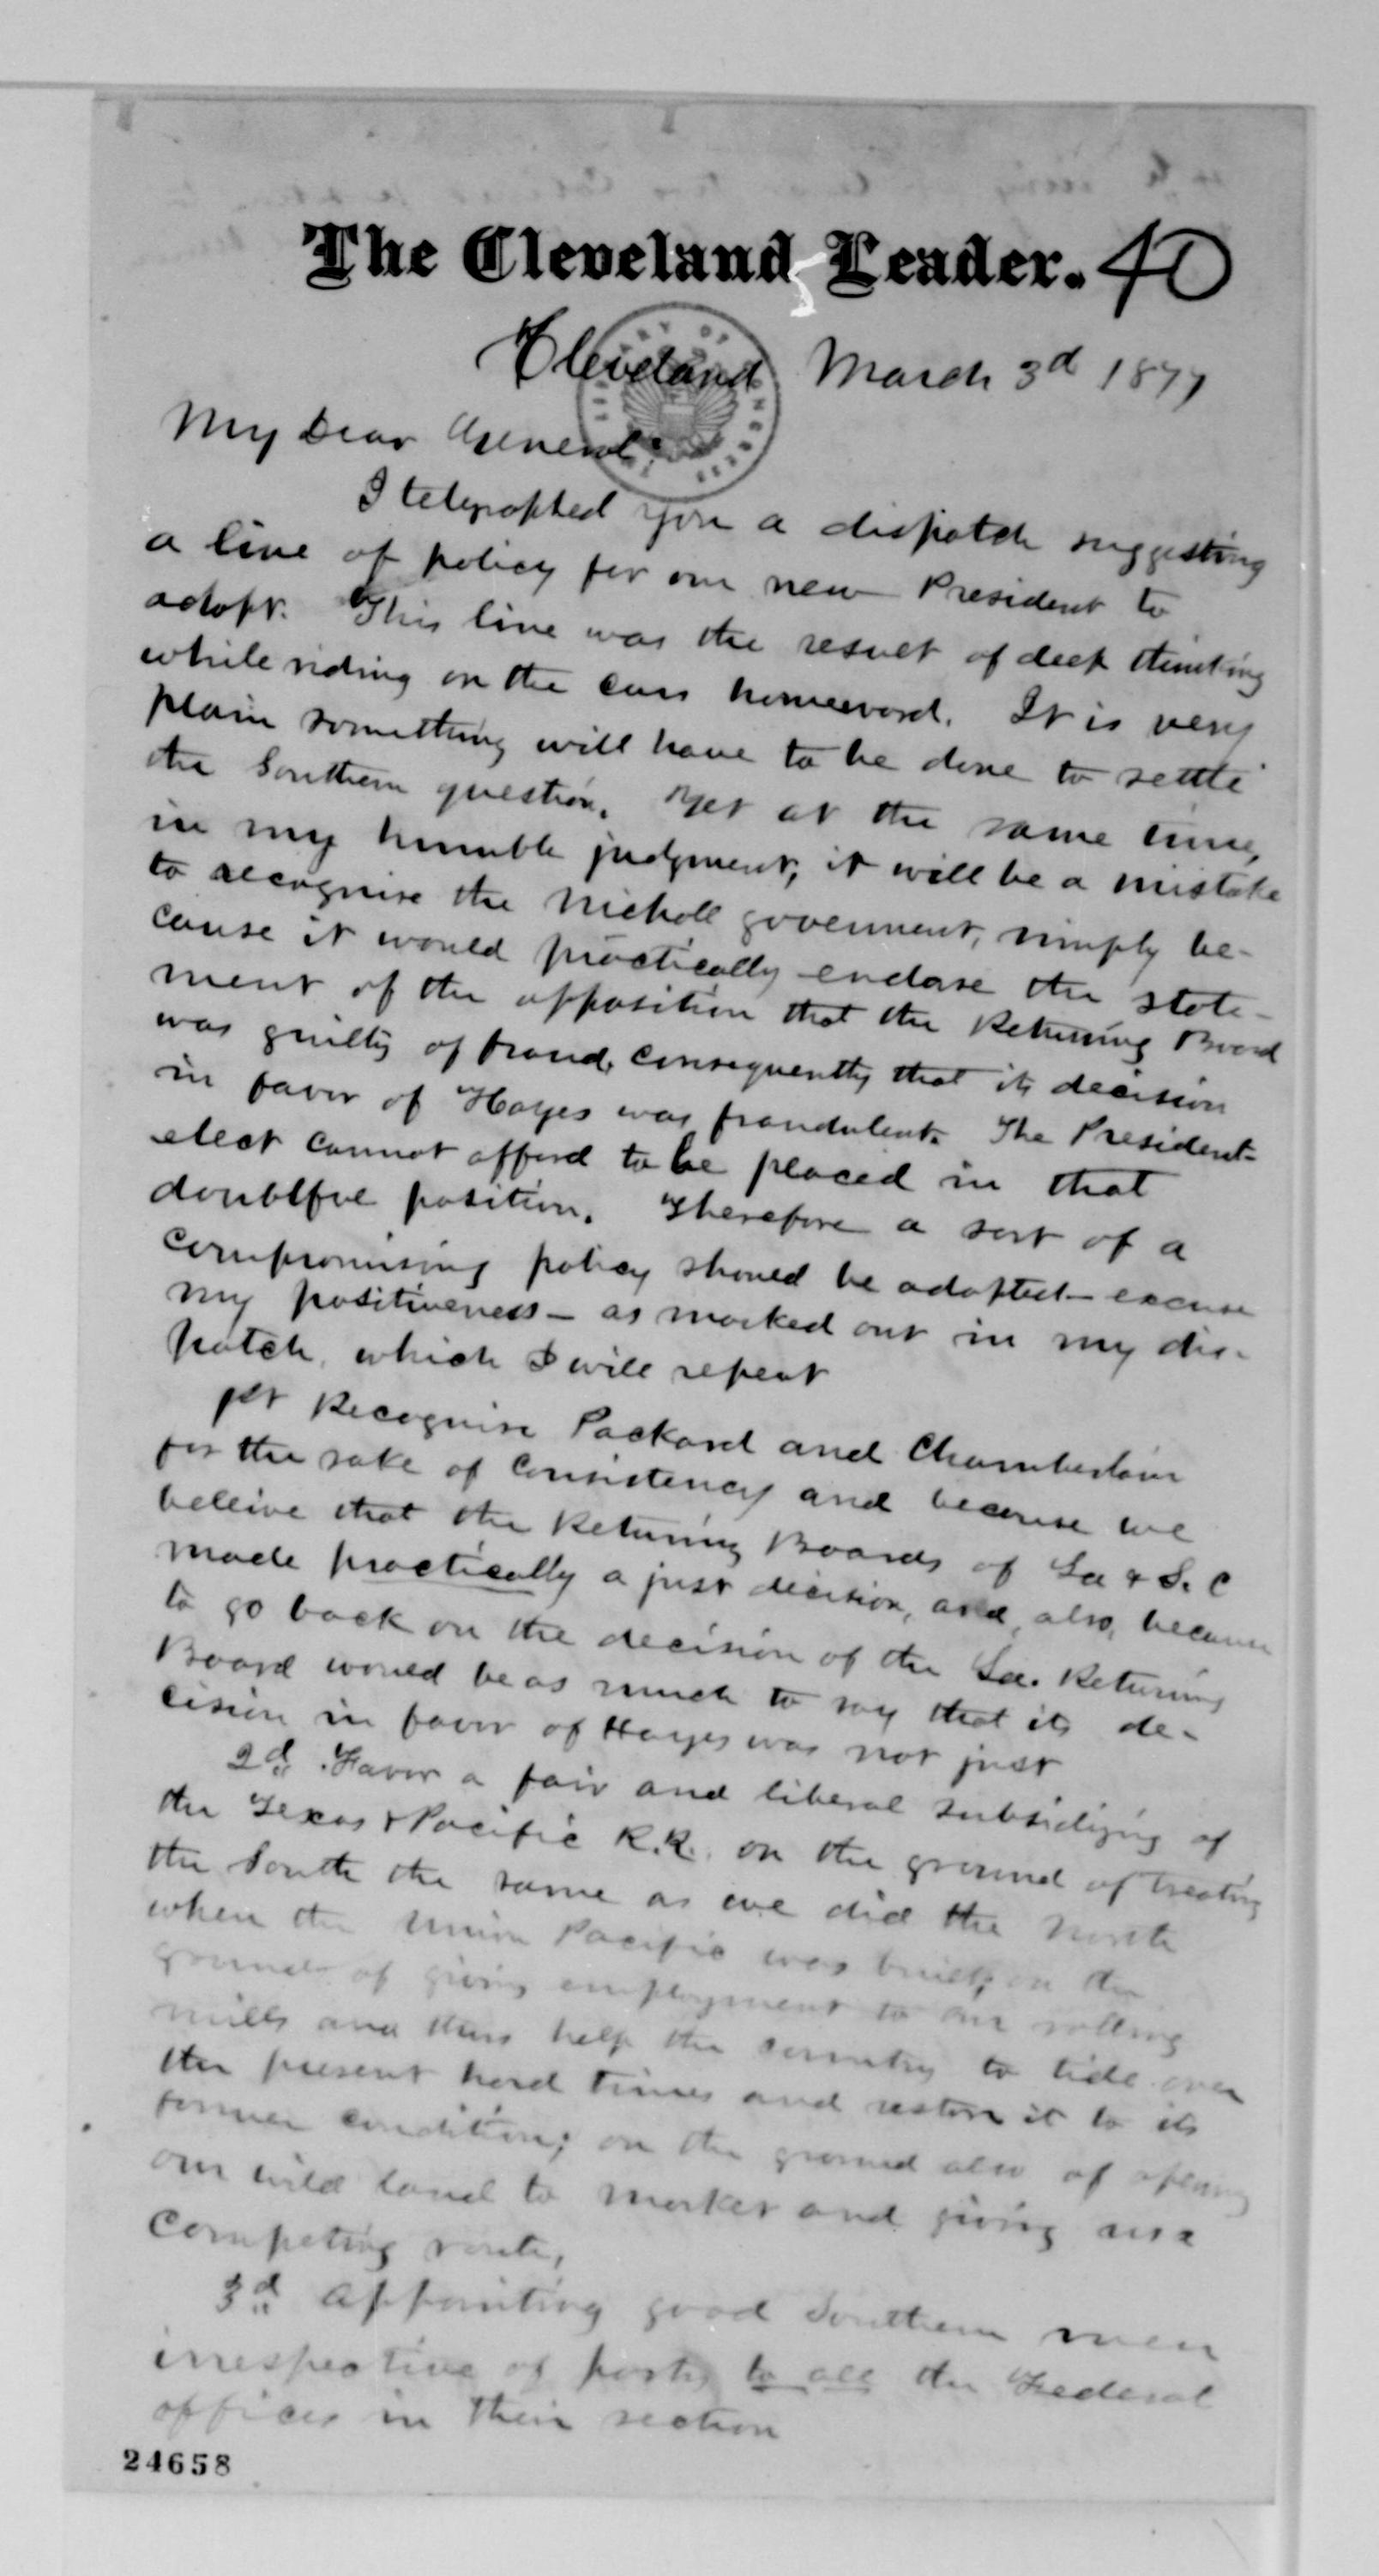 The Cleveland Leader. 40
Cleveland March 3d 1877
My Dear General:
I telegraphed you a dispatch suggesting
a line of policy for our new President to
adopt. This line was the result of deep thinking
while riding on the cars homeward. It is very
plain something will have to be done to settle
the Southern question. Yet at the same time,
in my humble judgment, it will be a mistake
to recognise the Nicholl government, simply be-
cause it would practically endorse the state-
ment of the opposition that the Returning Board
was guilty of fraud, consequently that its decision
in favor of Hayes was fraudulent. The President-
elect cannot afford to be placed in that
doubtful position. Therefore a sort of a
compromising policy should be adopted - excuse
my positiveness - as marked out in my dis-
patch, which I will repeat
1st Recognise Packard and Chamberlain
for the sake of consistency and because we
beleive that the Returning Boards of La & S. C
made practically a just decision, and, also, because
to go back on the decision of the La. Returning
Board would be as much to say that its de-
cision in favor of Hayes was not just
2d. Favor a fair and liberal subsidizing of
the Texas & Pacific R.R. on the ground of treating
the South the same as we did the North
when the Union Pacific was built, on the
ground of giving employment to our rolling
mills and thus help the country to tide over
the present hard times and restore it to its
former condition; on the ground also of opening
our wild land to market and giving us a
competing route,
3d Appointing good Southern men
irrespective of party to all the Federal
offices in their section
24658